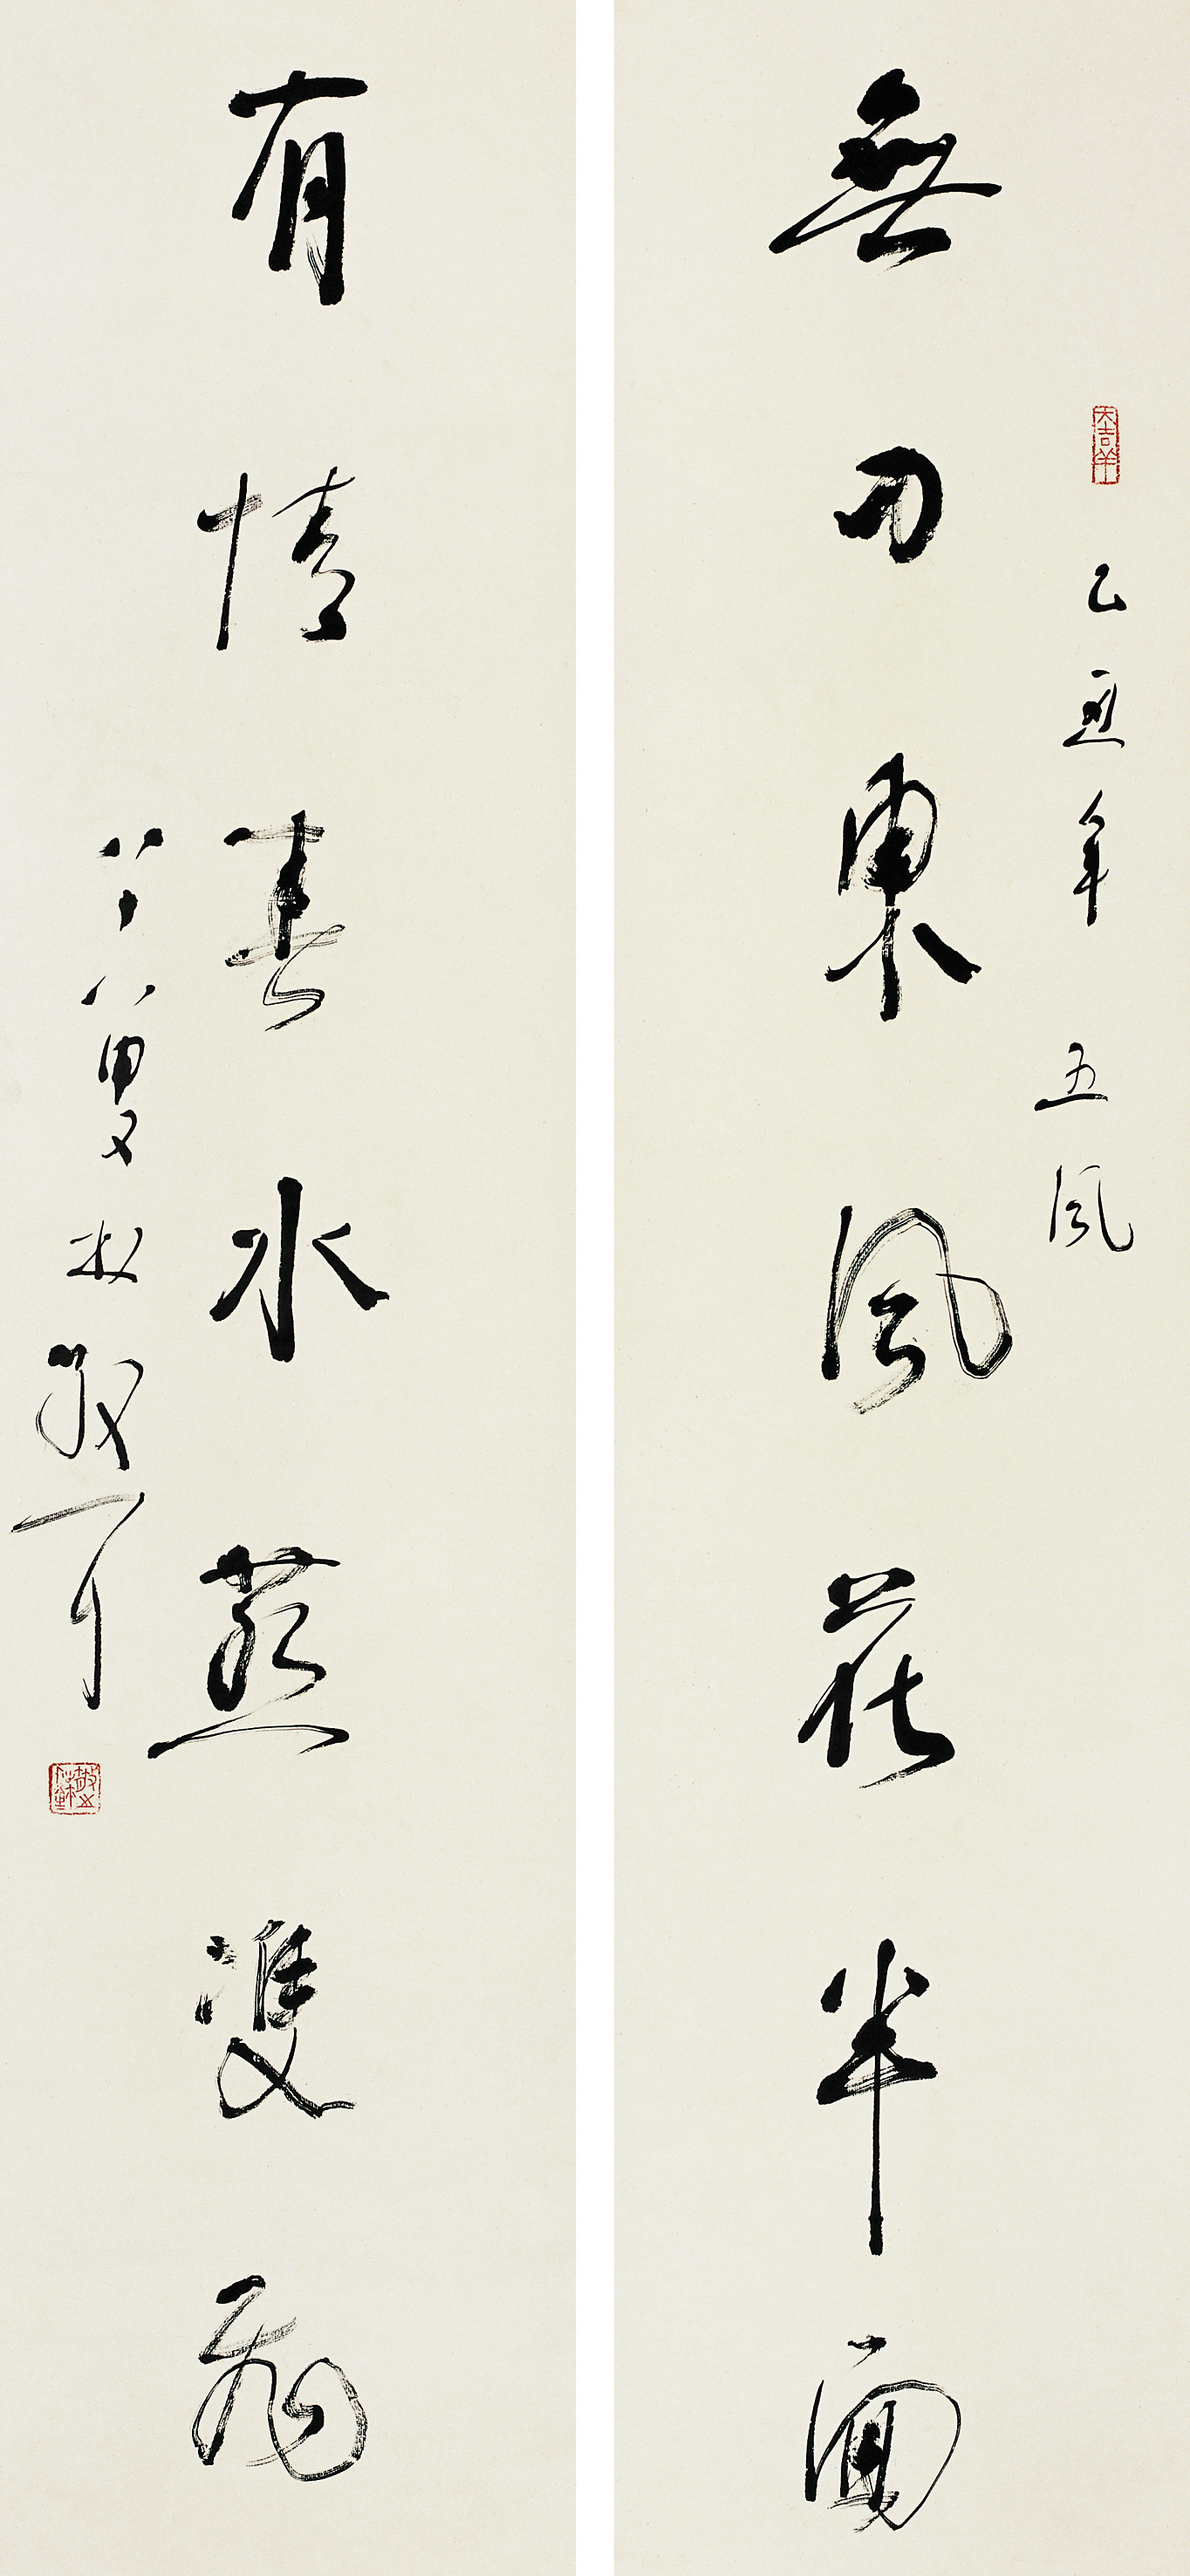 乙亥年 五風
無力東風花半面
有情春水燕雙飛
八十八叟林散耳